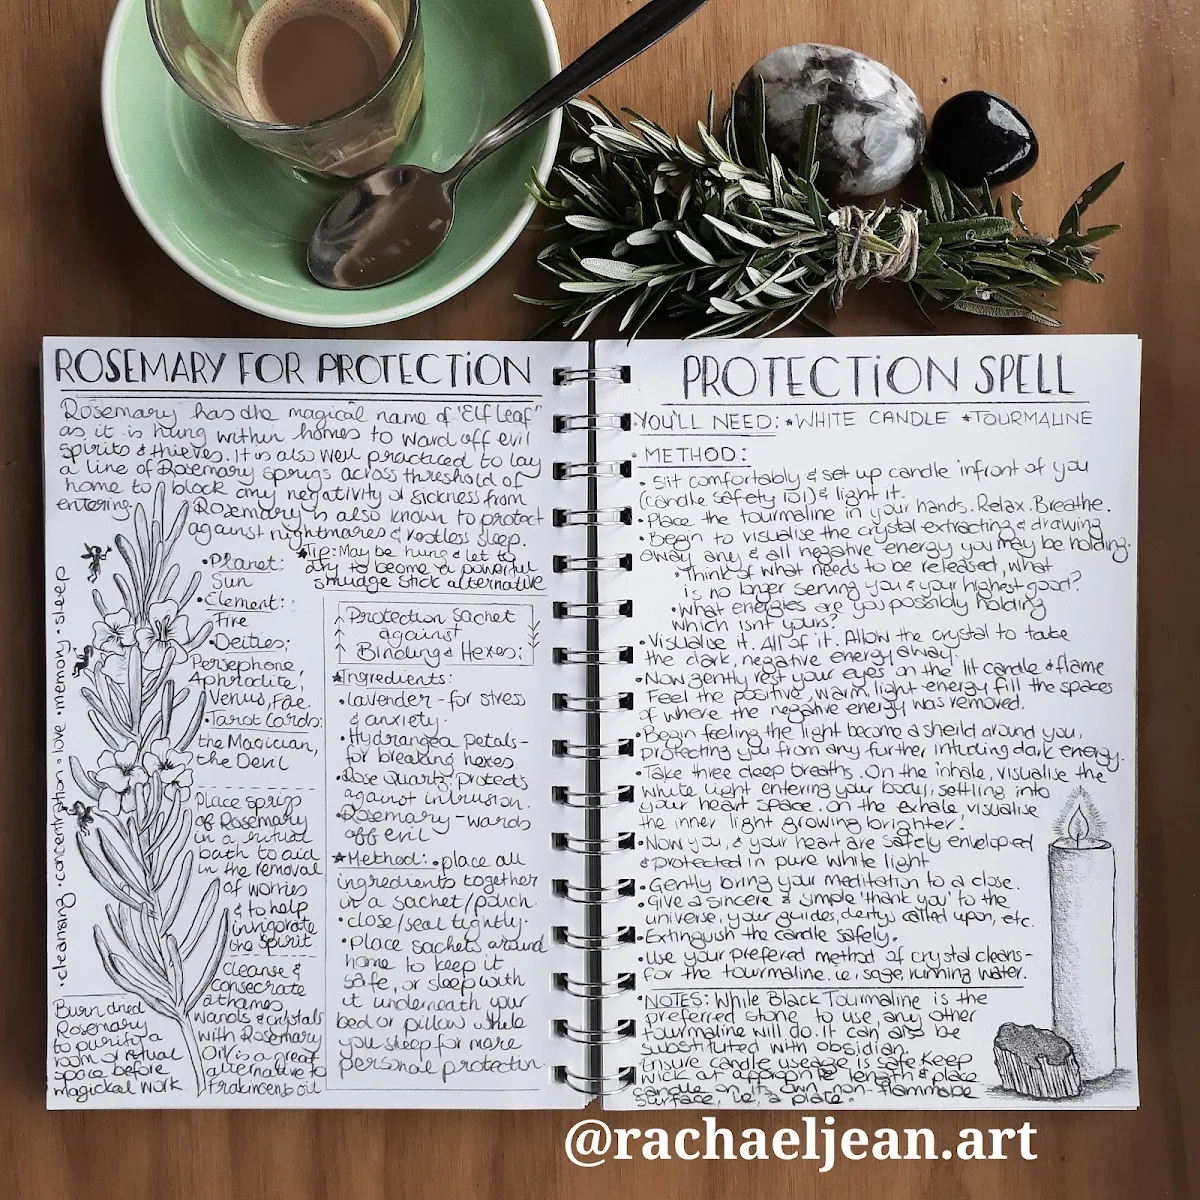 ROSEMARY FOR PROTECTION
Rosemary has the magical name of "Elf Leaf"
as it is hung within homes to ward off evil
spirits & thieves. It is also well practiced to lay
a line of Rosemary sprigs across threshold of
home to block any negativity or sickness from
entering.
Rosemary is also known to protect
against nightmares & restless sleep.
*Tip: May be hung & let to
dry to become a powerful
smudge stick alternative
•Planet:
Sun
•Element:
Fire
•Deities:
Persephone,
Aphrodite,
Venus, Fae.
•Tarot Cards:
the Magician,
the Devil
Place sprigs
of Rosemary
in a ritual
bath to aid
in the removal
of worries
& to help
invigorate
the spirit.
Cleanse &
consecrate
athames
wands & crystals
with Rosemary
Oil is a great
alternative to
frakincens oil
•cleansing •concentration •love •memory •sleep
Burn dried
Rosemary
to purify a
room or ritual
space before
magickal work
Protection Sachet
against
Binding & Hexes:
*Ingredients:
•lavender - for stress
& anxiety.
•Hydrangea petals-
for breaking hexes
•Rose Quartz, protects
against intrusion.
•Rosemary - wards
off evil
*Method: •place all
ingredients together
in a sachet/pouch.
•close/seal tightly.
•Place sachets around
home to keep it
safe, or sleep with
it underneath your
bed or pillow while
you sleep for more
personal protectin.
PROTECTION SPELL
•YOU'LL NEED: *WHITE CANDLE *TOURMALINE
•METHOD:
•Sit comfortably & set up candle infront of you
(candle safety 101) & light it.
•Place the tourmaline in your hands. Relax. Breathe.
•Begin to visualise the crystal extracting & drawing
away any & all negative energy you may be holding.
•Think of what needs to be released, what
is no longer serving you & your highest good?
•What energies are you possibly holding
which isn't yours?
•Visualise it. All of it. Allow the crystal to take
the dark, negative energy away.
•Now gently rest your eyes on the lit candle & flame
Feel the positive, warm, light energy fill the spaces
of where the negative energy was removed.
•Begin feeling the light become a sheild around you,
protecting you from any further intruding dark energy.
•Take three deep breaths. On the inhale, visualise the
white light entering your body, settling into
your heart space. On the exhale visualise
the inner light growing brighter!
•Now you, & your heart are safely enveloped
& protected in pure white light
•Gently bring your meditation to a close.
•Give a sincere & simple 'thank you' to the
universe, your guides, deity called upon, etc.
•Extinguish the candle safely.
•Use your preferred method of crystal cleans-
for the tourmaline. i.e, sage, running water.
•NOTES: While Black Tourmaline is the
preferred stone to use any other
tourmaline will do. It can also be
substituted with obsidian.
Ensure candle useage is safe. Keep
wick at appropriate length & place
candle on its own non-flammable
surface, i.e, a plate.
@rachaeljean.art